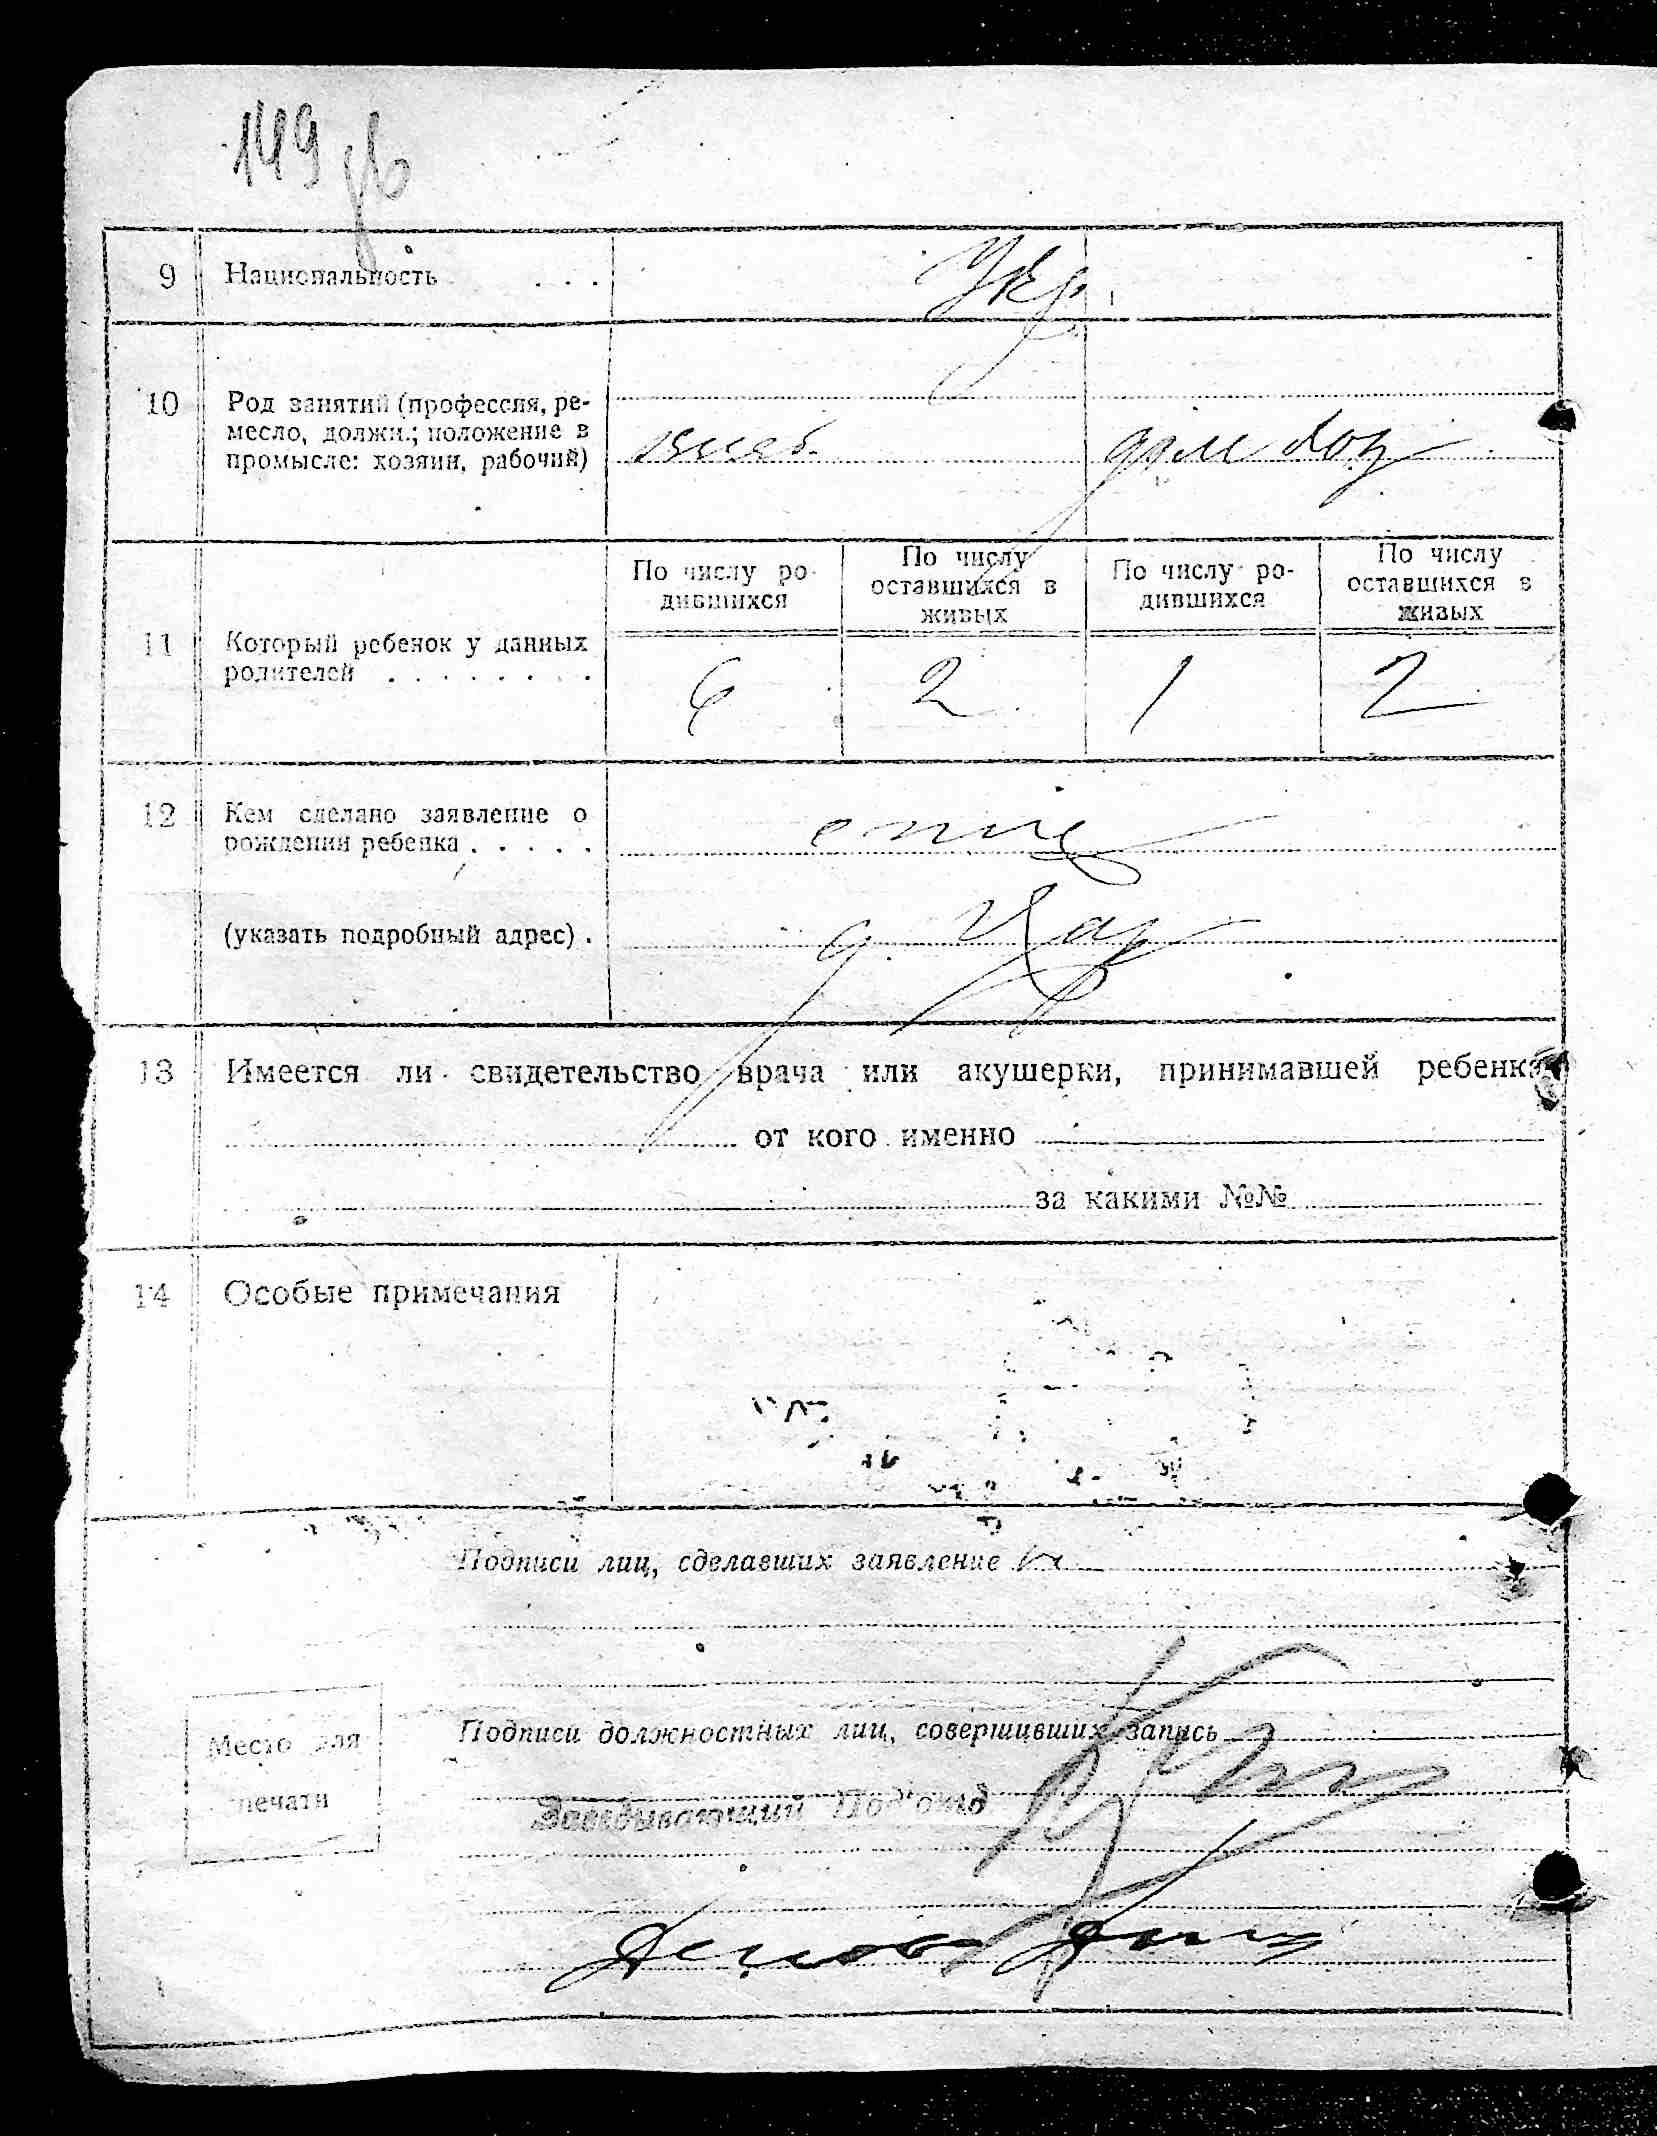 149 зв
9 Национальность . . .
Укр.
10 Род занятий (профессия, ре-
месло, должн.; положение в
промысле: хозяин, рабочий)
дом хоз
11 Который ребенок у данных
родителей . . . . . . . .
По числу ро-
дившихся
По числу
оставшихся в
живых
По числу ро-
дившихся
По числу
оставшихся в
живых
6 2 1 2
12 Кем сделано заявление о
рождении ребенка . . . . .
отец
(указать подробный адрес) .
13 Имеется ли свидетельство врача или акушерки, принимавшей ребенка
от кого именно
за какими №№
14 Особые примечания
Подписи лиц, сделавших заявление
Подписи должностных лиц, совершивших запись
Место для
печати
Заведывающий Под'отд